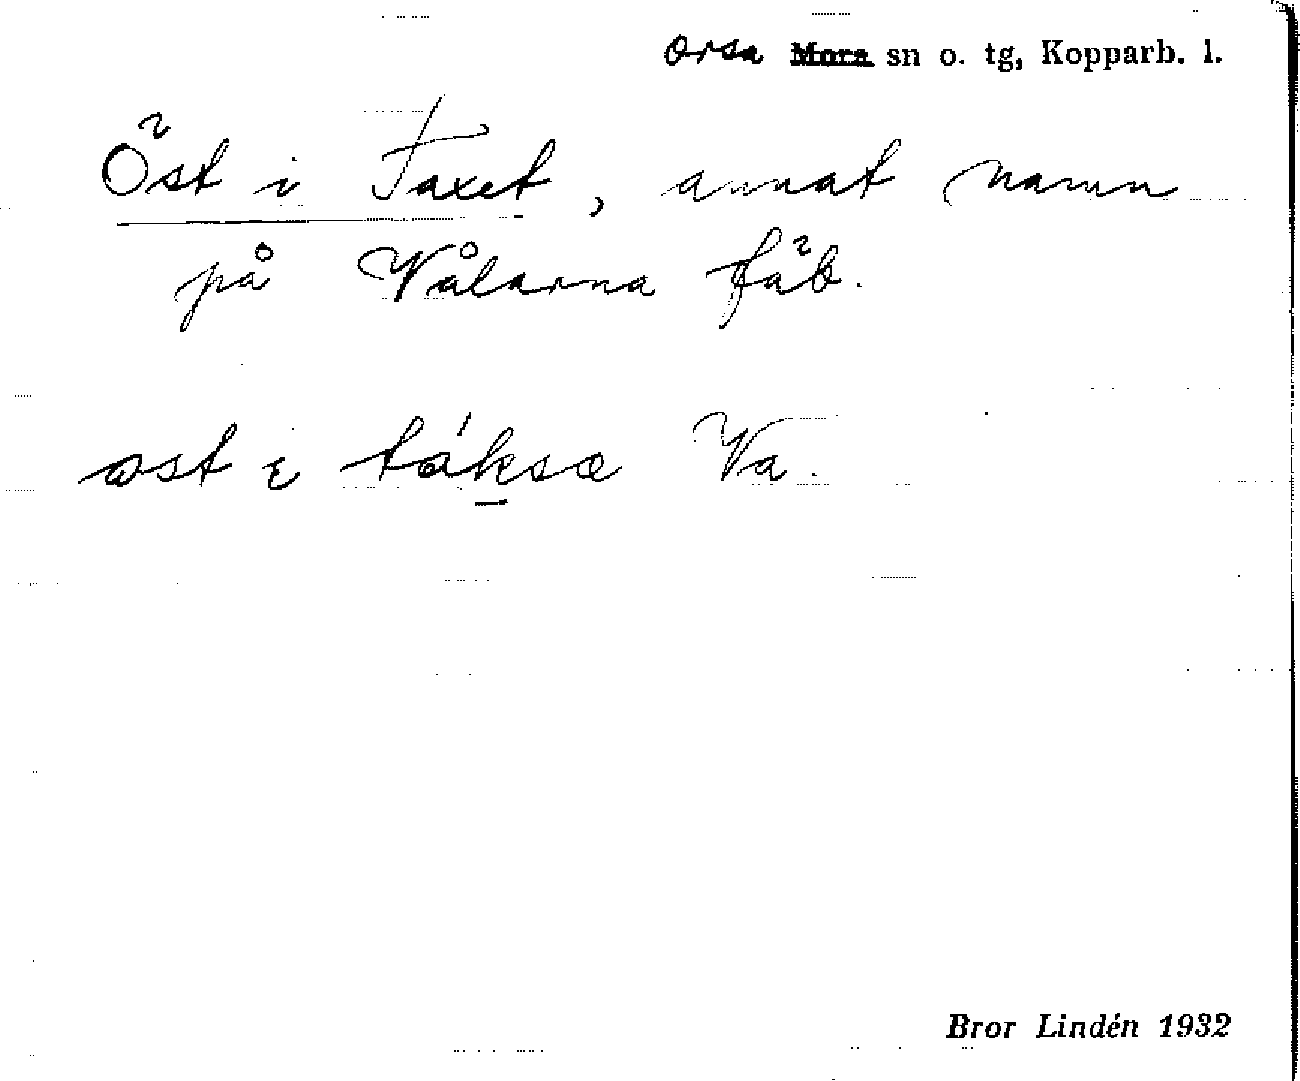 Orsa Mora sn o. tg, Kopparb. l.
Öst i Faxet, annat namn
på Vålarna fäb.
ost i fáksə Va.
Bror Lindén 1932